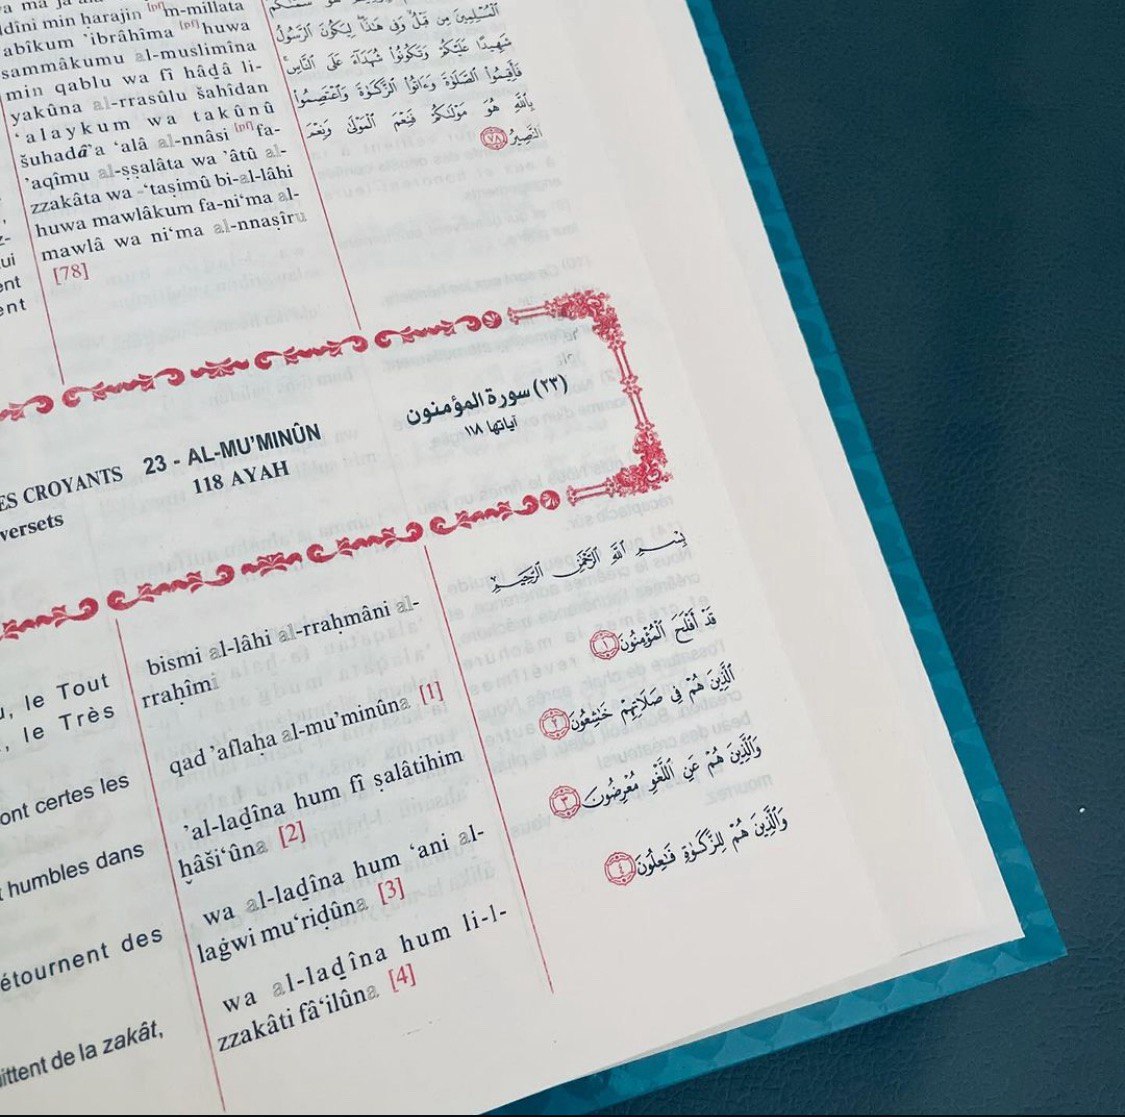 dîni min ḥarajin [pf]m-millata
abîkum ’ibrâhîma [pf]huwa
sammâkumu al-muslimîna
min qablu wa fî hâḏâ li-
yakûna al-rrasûlu šahîdan
‘alaykum wa takûnû
šuhadâ’a ‘alâ al-nnâsi [pf]fa-
’aqîmu al-ṣṣalâta wa ’âtû al-
zzakâta wa -‘taṣimû bi-al-lâhi
huwa mawlâkum fa-ni‘ma al-
mawlâ wa ni‘ma al-nnaṣîru
[78]
ٱلْمُسْلِمِينَ مِن قَبْلُ وَفِى هَٰذَا لِيَكُونَ ٱلرَّسُولُ
شَهِيدًا عَلَيْكُمْ وَتَكُونُوا۟ شُهَدَآءَ عَلَى ٱلنَّاسِ
فَأَقِيمُوا۟ ٱلصَّلَوٰةَ وَءَاتُوا۟ ٱلزَّكَوٰةَ وَٱعْتَصِمُوا۟
بِٱللَّهِ هُوَ مَوْلَىٰكُمْ فَنِعْمَ ٱلْمَوْلَىٰ وَنِعْمَ
ٱلنَّصِيرُ ٧٨
CROYANTS
versets
23 - AL-MU’MINÛN
118 AYAH
(٢٣) سورة المؤمنون
آياتها ١١٨
le Tout
le Très
certes les
humbles dans
des
de la zakât,
bismi al-lâhi al-rraḥmâni al-
rraḥîmi
qad ’aflaḥa al-mu’minûna [1]
’al-laḏîna hum fî ṣalâtihim
ḫâši‘ûna [2]
wa al-laḏîna hum ‘ani al-
laġwi mu‘riḍûna [3]
wa al-laḏîna hum li-l-
zzakâti fâ‘ilûna [4]
بِسْمِ ٱللَّهِ ٱلرَّحْمَٰنِ ٱلرَّحِيمِ
قَدْ أَفْلَحَ ٱلْمُؤْمِنُونَ ١
ٱلَّذِينَ هُمْ فِى صَلَاتِهِمْ خَٰشِعُونَ ٢
وَٱلَّذِينَ هُمْ عَنِ ٱللَّغْوِ مُعْرِضُونَ ٣
وَٱلَّذِينَ هُمْ لِلزَّكَوٰةِ فَٰعِلُونَ ٤